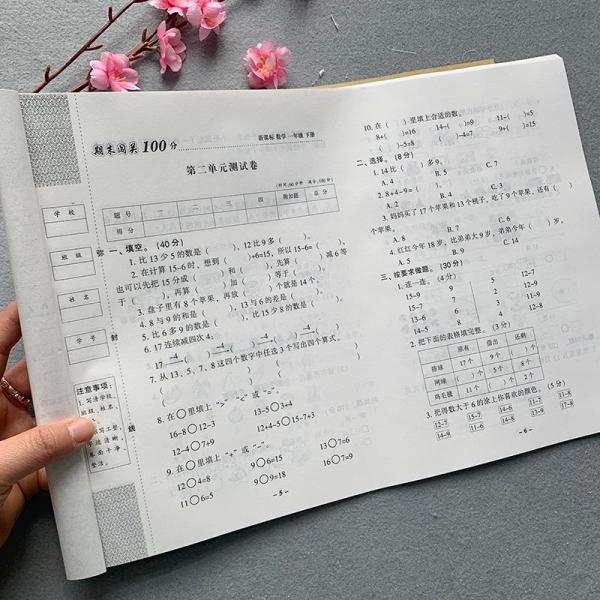 学校
班级
姓名
学号
弥
封
线
注意事项:
1.写清学校、
班级、姓名、
期末闯关100分
新课标 数学 一年级 下册
第二单元测试卷
(时间:90分钟 满分:100分)
题号 一 二 三 四 附加题 总分
得分
一、填空。(40分)
1. 比13少5的数是( ),12比9多( )。
2. 在计算15-6时,想到( )+6=15,所以15-6=( ),
也可以先把15分成( )和( ),先算( )减6等
于( ),再算( )加( )等于( )。
3. 盘子里有8个苹果,再放( )个就是14个。
4. 8与9的和是( ),13与6的差是( )。
5. 比6多9的数是( ),比15少8的数是( )。
6. 17连续减四次4:
17 -4 ( ) -4 ( ) -4 ( ) -4 ( )
7. 从13、5、7、8这四个数字中任选3个写出四个算式。
8. 在○里填上“>”“<”或“=”。
16-8○12-3 13-5○3+4
12-4○7+9 12+4-5○15-7+3
9. 在○里填上“+”或“-”。
12○4=8 9○6=15 13○7=6
11○6=5 9○9=18 16○7=9
- 5 -
10. 在( )里填上合适的数。
8+( )=16 14-( )=9 11-( )=5
( )-5=8 ( )-4=7 9+( )=15
二、选择。(8分)
1. 14比( )多9。
A. 4 B. 5 C. 7
2. 8+4-9=( )。
A. 2 B. ( ) C. 3
3. 妈妈买了17个苹果和13个桃子,吃了9个苹果,还有( )
个苹果。
A. 8 B. 7 C. 6
4. 红红今年18岁,比弟弟大9岁,弟弟今年( )岁。
A. 5 B. 9 C. 14
三、按要求做题。(30分)
1. 连一连。(4分)
15-9 9 5 12-7
15-7 7 2 11-9
13-6 6 3 12-8
14-5 8 4 11-8
2. 把下面的表格填完整。(3分)
原有 借出 还剩
排球 17个 9个 ( )个
网球 ( )个 5个 8个
鸡毛毽 11个 ( )个 2个
3. 把得数大于6的涂上你喜欢的颜色。(5分)
12-7 15-7 14-6 13-5 11-8
14-9 11-6 12-6 11-5 17-8
- 6 -